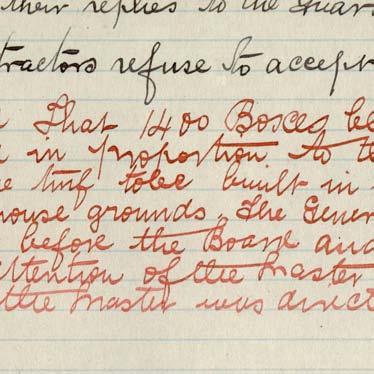 their replies to the Guar
tractors refuse to accept
That 1400 Boxes be
in proportion to the
turf tobe built in
house grounds. The Gener
before the Board and
attention of the Master
the Master was direct